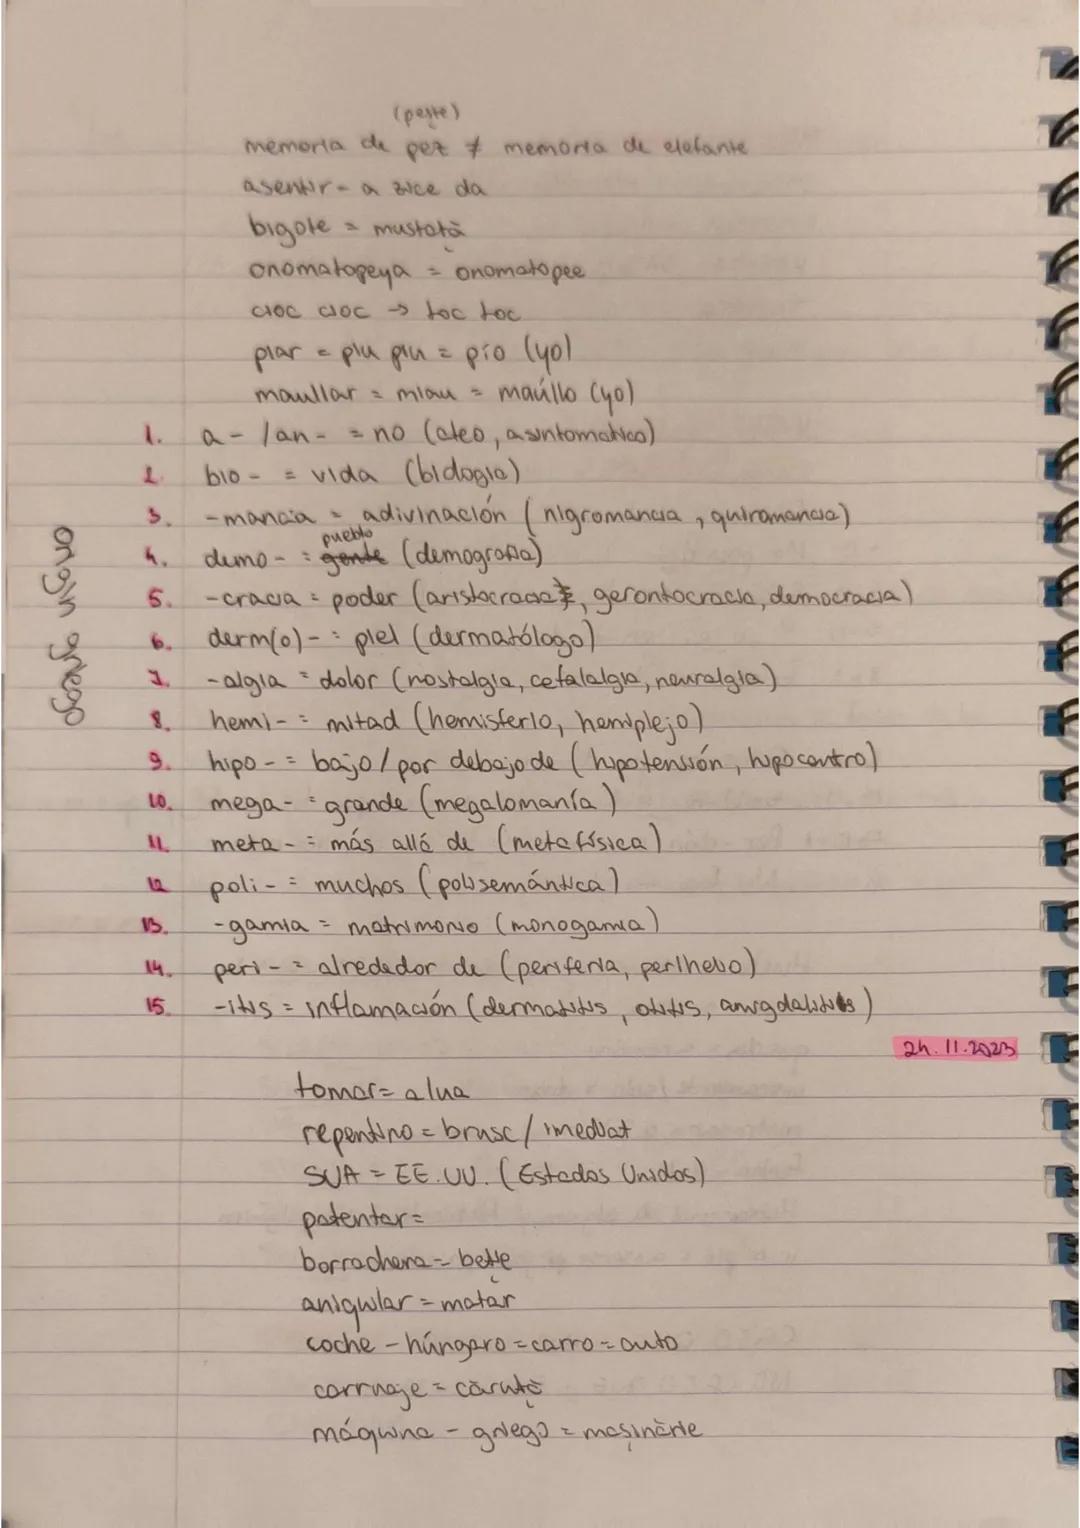 (pește)
memoria de pez ≠ memoria de elefante
asentir - a zice da
bigote = mustață
onomatopeya = onomatopee
cioc cioc → toc toc
piar = piu piu = pío (yo)
maullar = miau = maúllo (yo)
origen griego
1. a- /an- = no (ateo, asintomatico)
2. bio- = vida (biologia)
3. -mancia = adivinación (nigromancia, quiromancia)
4. demo- = gente pueblo (demografia)
5. -cracia = poder (aristocracia, gerontocracia, democracia)
6. derm(o)- = piel (dermatólogo)
7. -algia = dolor (nostalgia, cefalalgia, neuralgia)
8. hemi- = mitad (hemisferio, hemiplejo)
9. hipo- = bajo/por debajo de (hipotensión, hipocentro)
10. mega- = grande (megalomanía)
11. meta- = más allá de (metafísica)
12 poli- = muchos (polisemántica)
13. -gamia = matrimonio (monogamia)
14. peri- = alrededor de (periferia, perihelio)
15. -itis = inflamación (dermatitis, otitis, amigdalitis)
24.11.2023
tomar = a lua
repentino = brusc/imediat
SUA = EE.UU. (Estados Unidos)
patentar =
borrachera = beție
aniquilar = matar
coche - húngaro = carro = auto
carruaje = căruță
máquina - griego = mașinărie